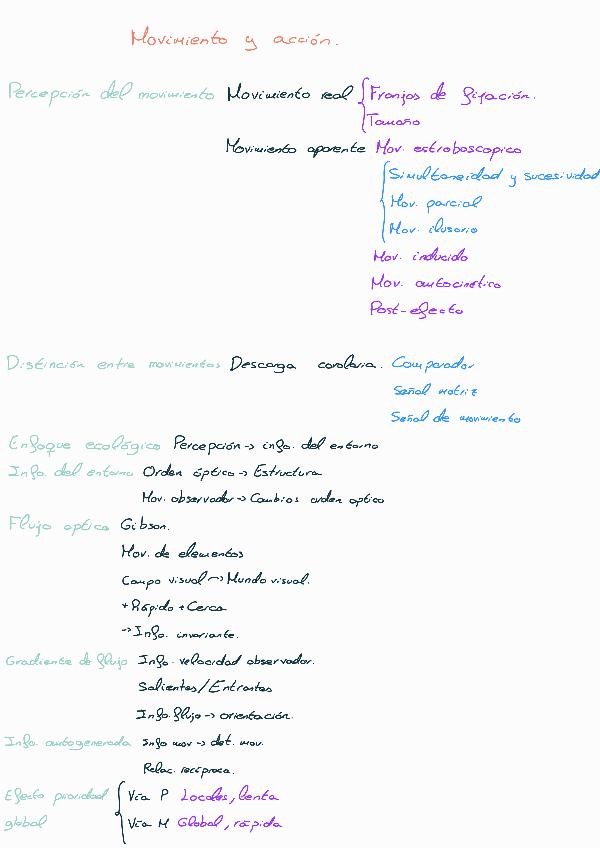 Movimiento y acción.
Percepción del movimiento Movimiento real { Franjas de fijación.
Tamaño
Movimiento aparente Mov. estroboscopico
{ Simultaneidad y sucesividad
Mov. parcial
Mov. ilusorio
Mov. inducido
Mov. autocinético
Post-efecto
Distinción entre movimientos Descarga corolaria. Comparador
Señal motriz
Señal de movimiento
Enfoque ecológico Percepción -> info. del entorno
Info. del entorno Orden óptico -> Estructura
Mov. observador -> Cambios orden optico
Flujo optico Gibson.
Mov. de elementos
Campo visual -> Mundo visual.
+ Rápido + Cerca
-> Info. invariante.
Gradiente de flujo Info. velocidad observador.
Salientes/Entrantes
Info. flujo -> orientación.
Info. autogenerada Info mov -> det. mov.
Relac. recíproca.
Efecto prioridad { Vía P Locales, lenta
global Vía M Global, rápida